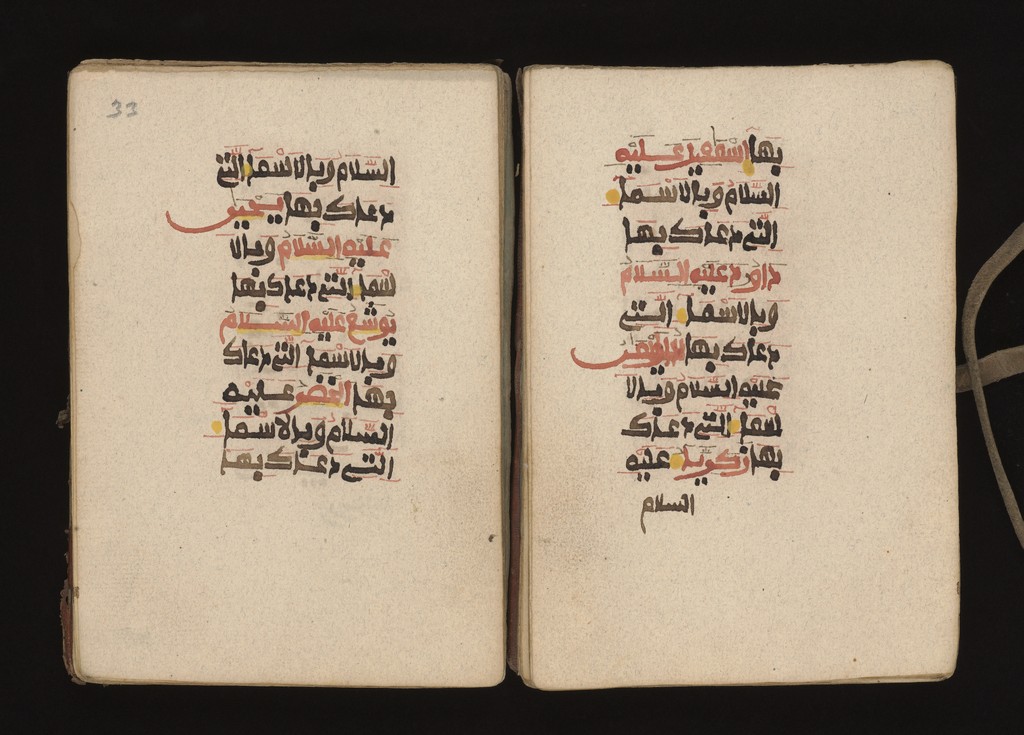 بها اسمعيل عليه
السلام وبالاسما
التي دعاك بها
داود عليه السلام
وبالاسما التي
دعاك بها
عليه السلام وبالا
سما التي دعاك
بها زكريا عليه
السلام
33
السلام وبالاسما التي
دعاك بها يحيى
عليه السلام وبالا
سما التي دعاك بها
يوشع عليه السلام
وبالاسما التي دعاك
بها الخضر عليه
السلام وبالاسما
التي دعاك بها